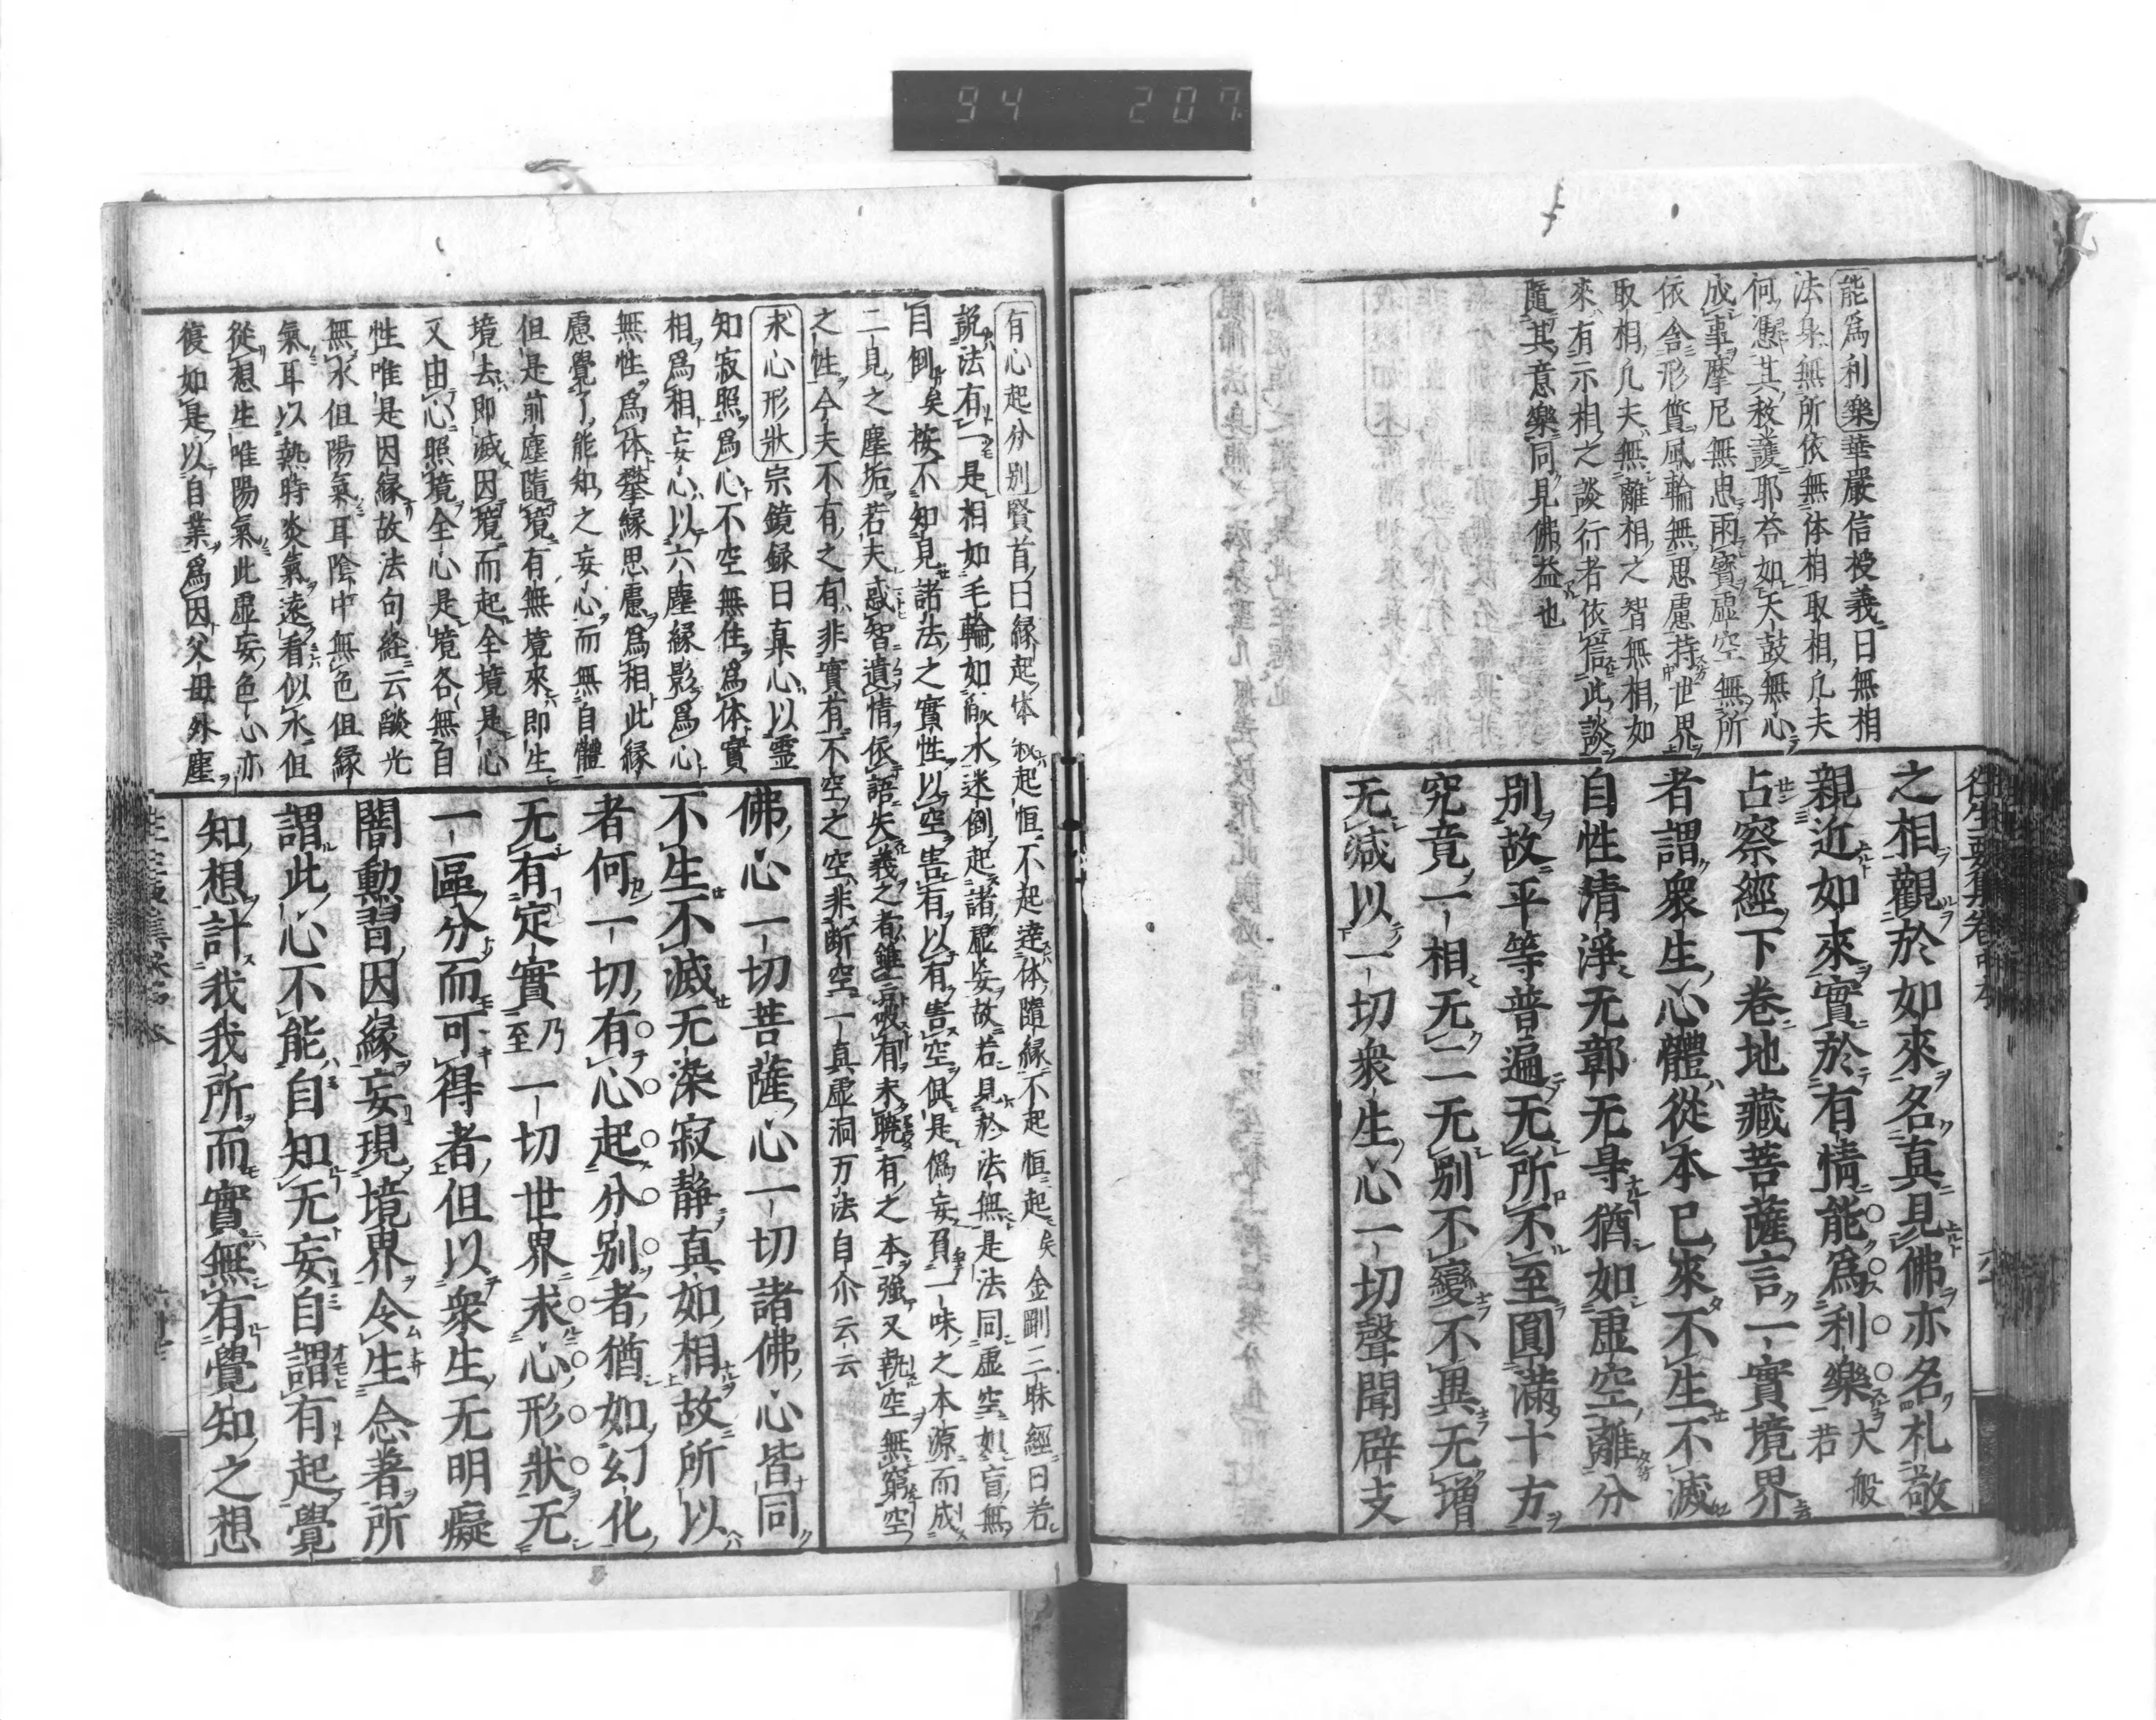 94 207
能爲利樂華嚴信授義曰無相
法身無所依無体相取相凡夫
何憑其救護耶答如天鼓無心
成事摩尼無思雨寳虚空無所
依含形質風輪無思慮持世界
取相凡夫無離相之智無相如
來有示相之談行者依信此談
隨其意樂同見佛益也
之相觀於如來名真見佛亦名札敬
親近如來實於有情能爲利樂大般若
占察經下巻地藏菩薩言一實境界
者謂衆生心體從本已來不生不滅
自性清淨无鄣无㝵猶如虚空離分
別故平等普遍无所不至圓滿十方
究竟一相无二无別不變不異无増
无减以一切衆生心一切聲聞辟支
有心起分別賢首曰縁起体
説法有一是相如毛輪如
目倒矣按不知見諸法之實性以空害有以有害空倶是僞妄
二見之塵垢若夫惑智遣情依語失義之者雖云破有未曉有之本強又執空無窮空
之性今夫不有之有非實有不空之空非断空一真虚洞万法自介云云
求心形狀宗鏡録曰真心以霊
知寂照爲心不空無住爲体實
相爲相妄心以六塵縁影爲心
無性爲体攀縁思慮爲相此縁
慮覺了能知之妄心而無自體
但是前塵隨境有無境來即生
境去即滅因境而起全境是心
又由心照境全心是境各無自
性唯是因縁故法句経云燄光
無水但陽氣耳陰中無色但縁
氣耳以熱時炎氣遠看似水但
從想生唯陽氣此虚妄色心亦
復如是以自業爲因父母外塵
佛心一切菩薩心一切諸佛心皆同
不生不滅无染寂静真如相故所以
者何一切有心起分別者猶如幻化
无有定實乃至一切世界求心形狀无
一區分而可得者但以衆生无明癡
闇勳習因縁妄現境界令生念著所
謂此心不能自知无妄自謂有起覺
知想計我我所而實無有覺知之想